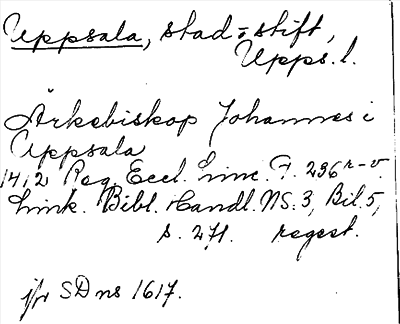 Uppsala, stad o. stift,
Upps. l.
Ärkebiskop Johannes i
Uppsala
1412 Reg. Eccl. Linc. f. 236 r-v.
Link. Bibl. Handl. NS. 3, Bil. 5,
s. 271. regest.
jfr SD ns 1617.